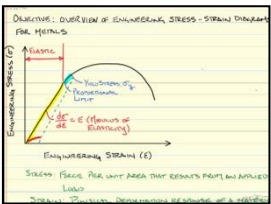 OBJECTIVE: OVERVIEW OF ENGINEERING STRESS-STRAIN DIAGRAMS
FOR METALS
ELASTIC
YIELD STRESS, σy
PROPORTIONAL
LIMIT
dσ/dε = E (MODULUS OF
ELASTICITY)
ENGINEERING STRESS (σ)
ENGINEERING STRAIN (ε)
STRESS: FORCE PER UNIT AREA THAT RESULTS FROM AN APPLIED
LOAD
STRAIN: PHYSICAL DEFORMATION RESPONSE OF A